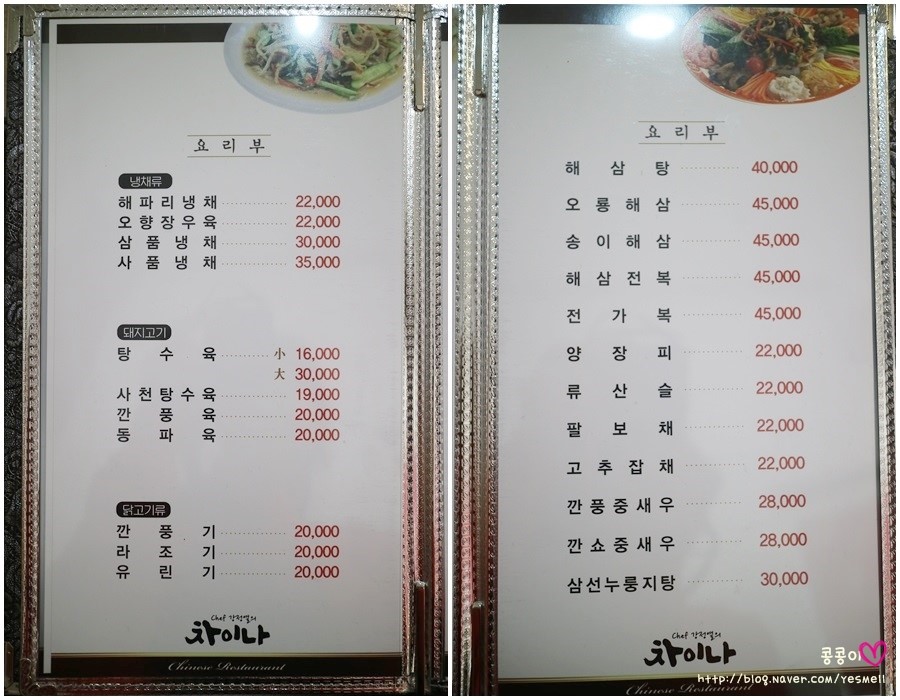 요리부
냉채류
해파리냉채 22,000
오향장우육 22,000
삼품냉채 30,000
사품냉채 35,000
돼지고기
탕수육 小 16,000
大 30,000
사천탕수육 19,000
깐풍육 20,000
동파육 20,000
닭고기류
깐풍기 20,000
라조기 20,000
유린기 20,000
Chef 강정열의
차이나
Chinese Restaurant
요리부
해삼탕 40,000
오룡해삼 45,000
송이해삼 45,000
해삼전복 45,000
전가복 45,000
양장피 22,000
류산슬 22,000
팔보채 22,000
고추잡채 22,000
깐풍중새우 28,000
깐쇼중새우 28,000
삼선누룽지탕 30,000
Chef 강정열의
차이나
Chinese Restaurant
콩콩이
http://blog.naver.com/yesmell